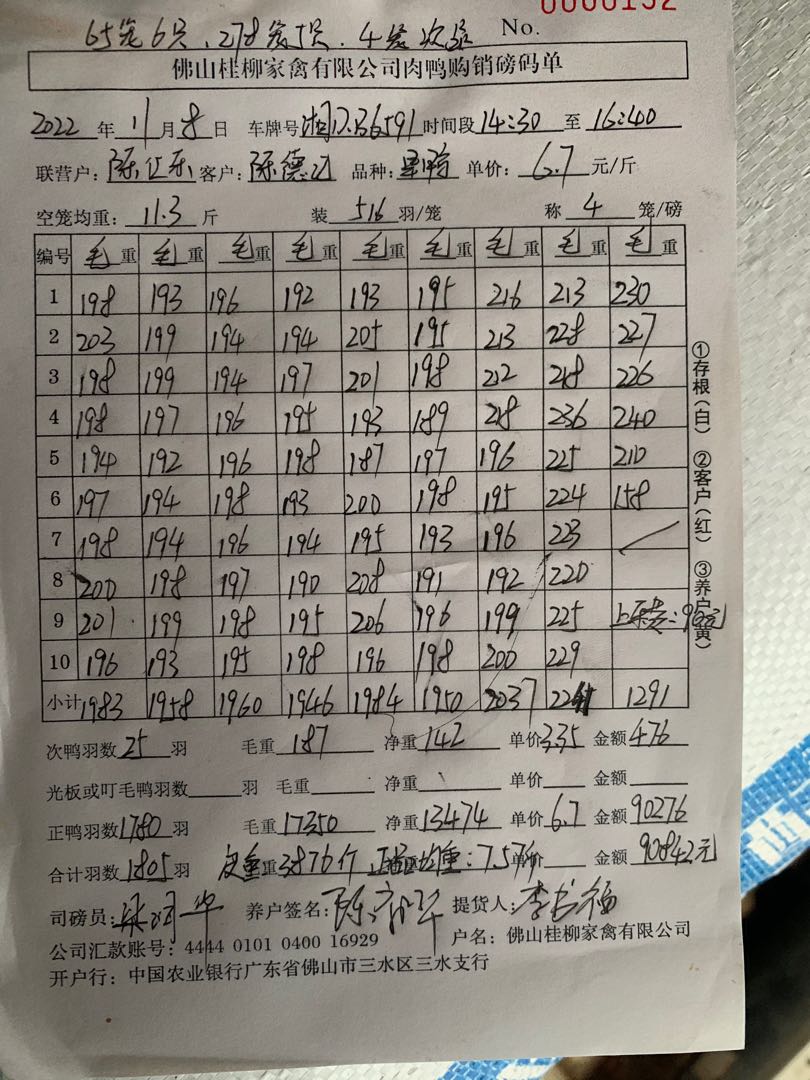 0000152
65笼6只、278笼5只、4笼次品 No.
佛山桂柳家禽有限公司肉鸭购销磅码单
2022 年 11 月 8 日 车牌号 湘D.B6591 时间段 14:30 至 16:40
联营户: 陈 乐 客户: 陈德 品种: 单价: 6.7 元/斤
空笼均重: 11.3 斤 装 5/6 羽/笼 称 4 笼/磅
编号 毛重 毛重 毛重 毛重 毛重 毛重 毛重 毛重 毛重
1 198 193 196 192 193 195 216 213 230
2 203 199 194 194 205 195 213 228 227
3 198 199 194 197 201 198 212 218 226
4 198 197 196 195 193 189 218 236 240
5 194 192 196 198 187 197 196 225 210
6 197 194 198 193 200 198 195 224 158
7 198 194 196 194 195 193 196 223
8 200 198 197 190 208 191 192 220
9 201 199 198 195 206 196 199 225 上车费: 元
10 196 193 195 198 196 198 200 229
小计 1983 1958 1960 1946 1984 1950 2037 2241 1291
①存根(白) ②客户(红) ③养户(黄)
次鸭羽数 25 羽 毛重 187 净重 142 单价 3.35 金额 476
光板或叮毛鸭羽数 羽 毛重 净重 单价 金额
正鸭羽数 1780 羽 毛重 17350 净重 13474 单价 6.7 金额 90276
合计羽数 1805 羽 皮重 3876斤 均重: 7.57斤 单价 金额 90842元
司磅员: 华 养户签名: 陈 华 提货人: 李书福
公司汇款账号: 4444 0101 0400 16929 户名: 佛山桂柳家禽有限公司
开户行: 中国农业银行广东省佛山市三水区三水支行